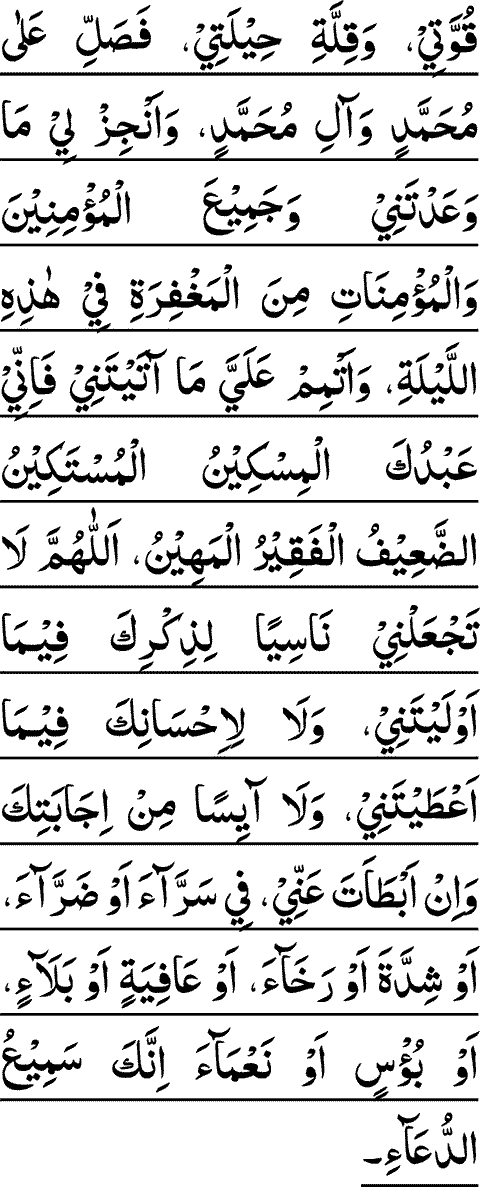 قُوَّتِيْ، وَقِلَّةِ حِيْلَتِيْ، فَصَلِّ عَلٰى
مُحَمَّدٍ وَآلِ مُحَمَّدٍ، وَاَنْجِزْ لِيْ مَا
وَعَدْتَنِيْ وَجَمِيْعَ الْمُؤْمِنِيْنَ
وَالْمُؤْمِنَاتِ مِنَ الْمَغْفِرَةِ فِيْ هٰذِهِ
اللَّيْلَةِ، وَاَتْمِمْ عَلَيَّ مَا آتَيْتَنِيْ فَاِنِّيْ
عَبْدُكَ الْمِسْكِيْنُ الْمُسْتَكِيْنُ
الضَّعِيْفُ الْفَقِيْرُ الْمَهِيْنُ، اَللّٰهُمَّ لَا
تَجْعَلْنِيْ نَاسِيًا لِذِكْرِكَ فِيْمَا
اَوْلَيْتَنِيْ، وَلَا لِاِحْسَانِكَ فِيْمَا
اَعْطَيْتَنِيْ، وَلَا آيِسًا مِنْ اِجَابَتِكَ
وَاِنْ اَبْطَاَتَ عَنِّيْ، فِيْ سَرَّآءَ اَوْ ضَرَّآءَ،
اَوْ شِدَّةَ اَوْ رَخَآءَ، اَوْ عَافِيَةٍ اَوْ بَلَآءٍ،
اَوْ بُؤْسٍ اَوْ نَعْمَآءَ اِنَّكَ سَمِيْعُ
الدُّعَآءِ۔